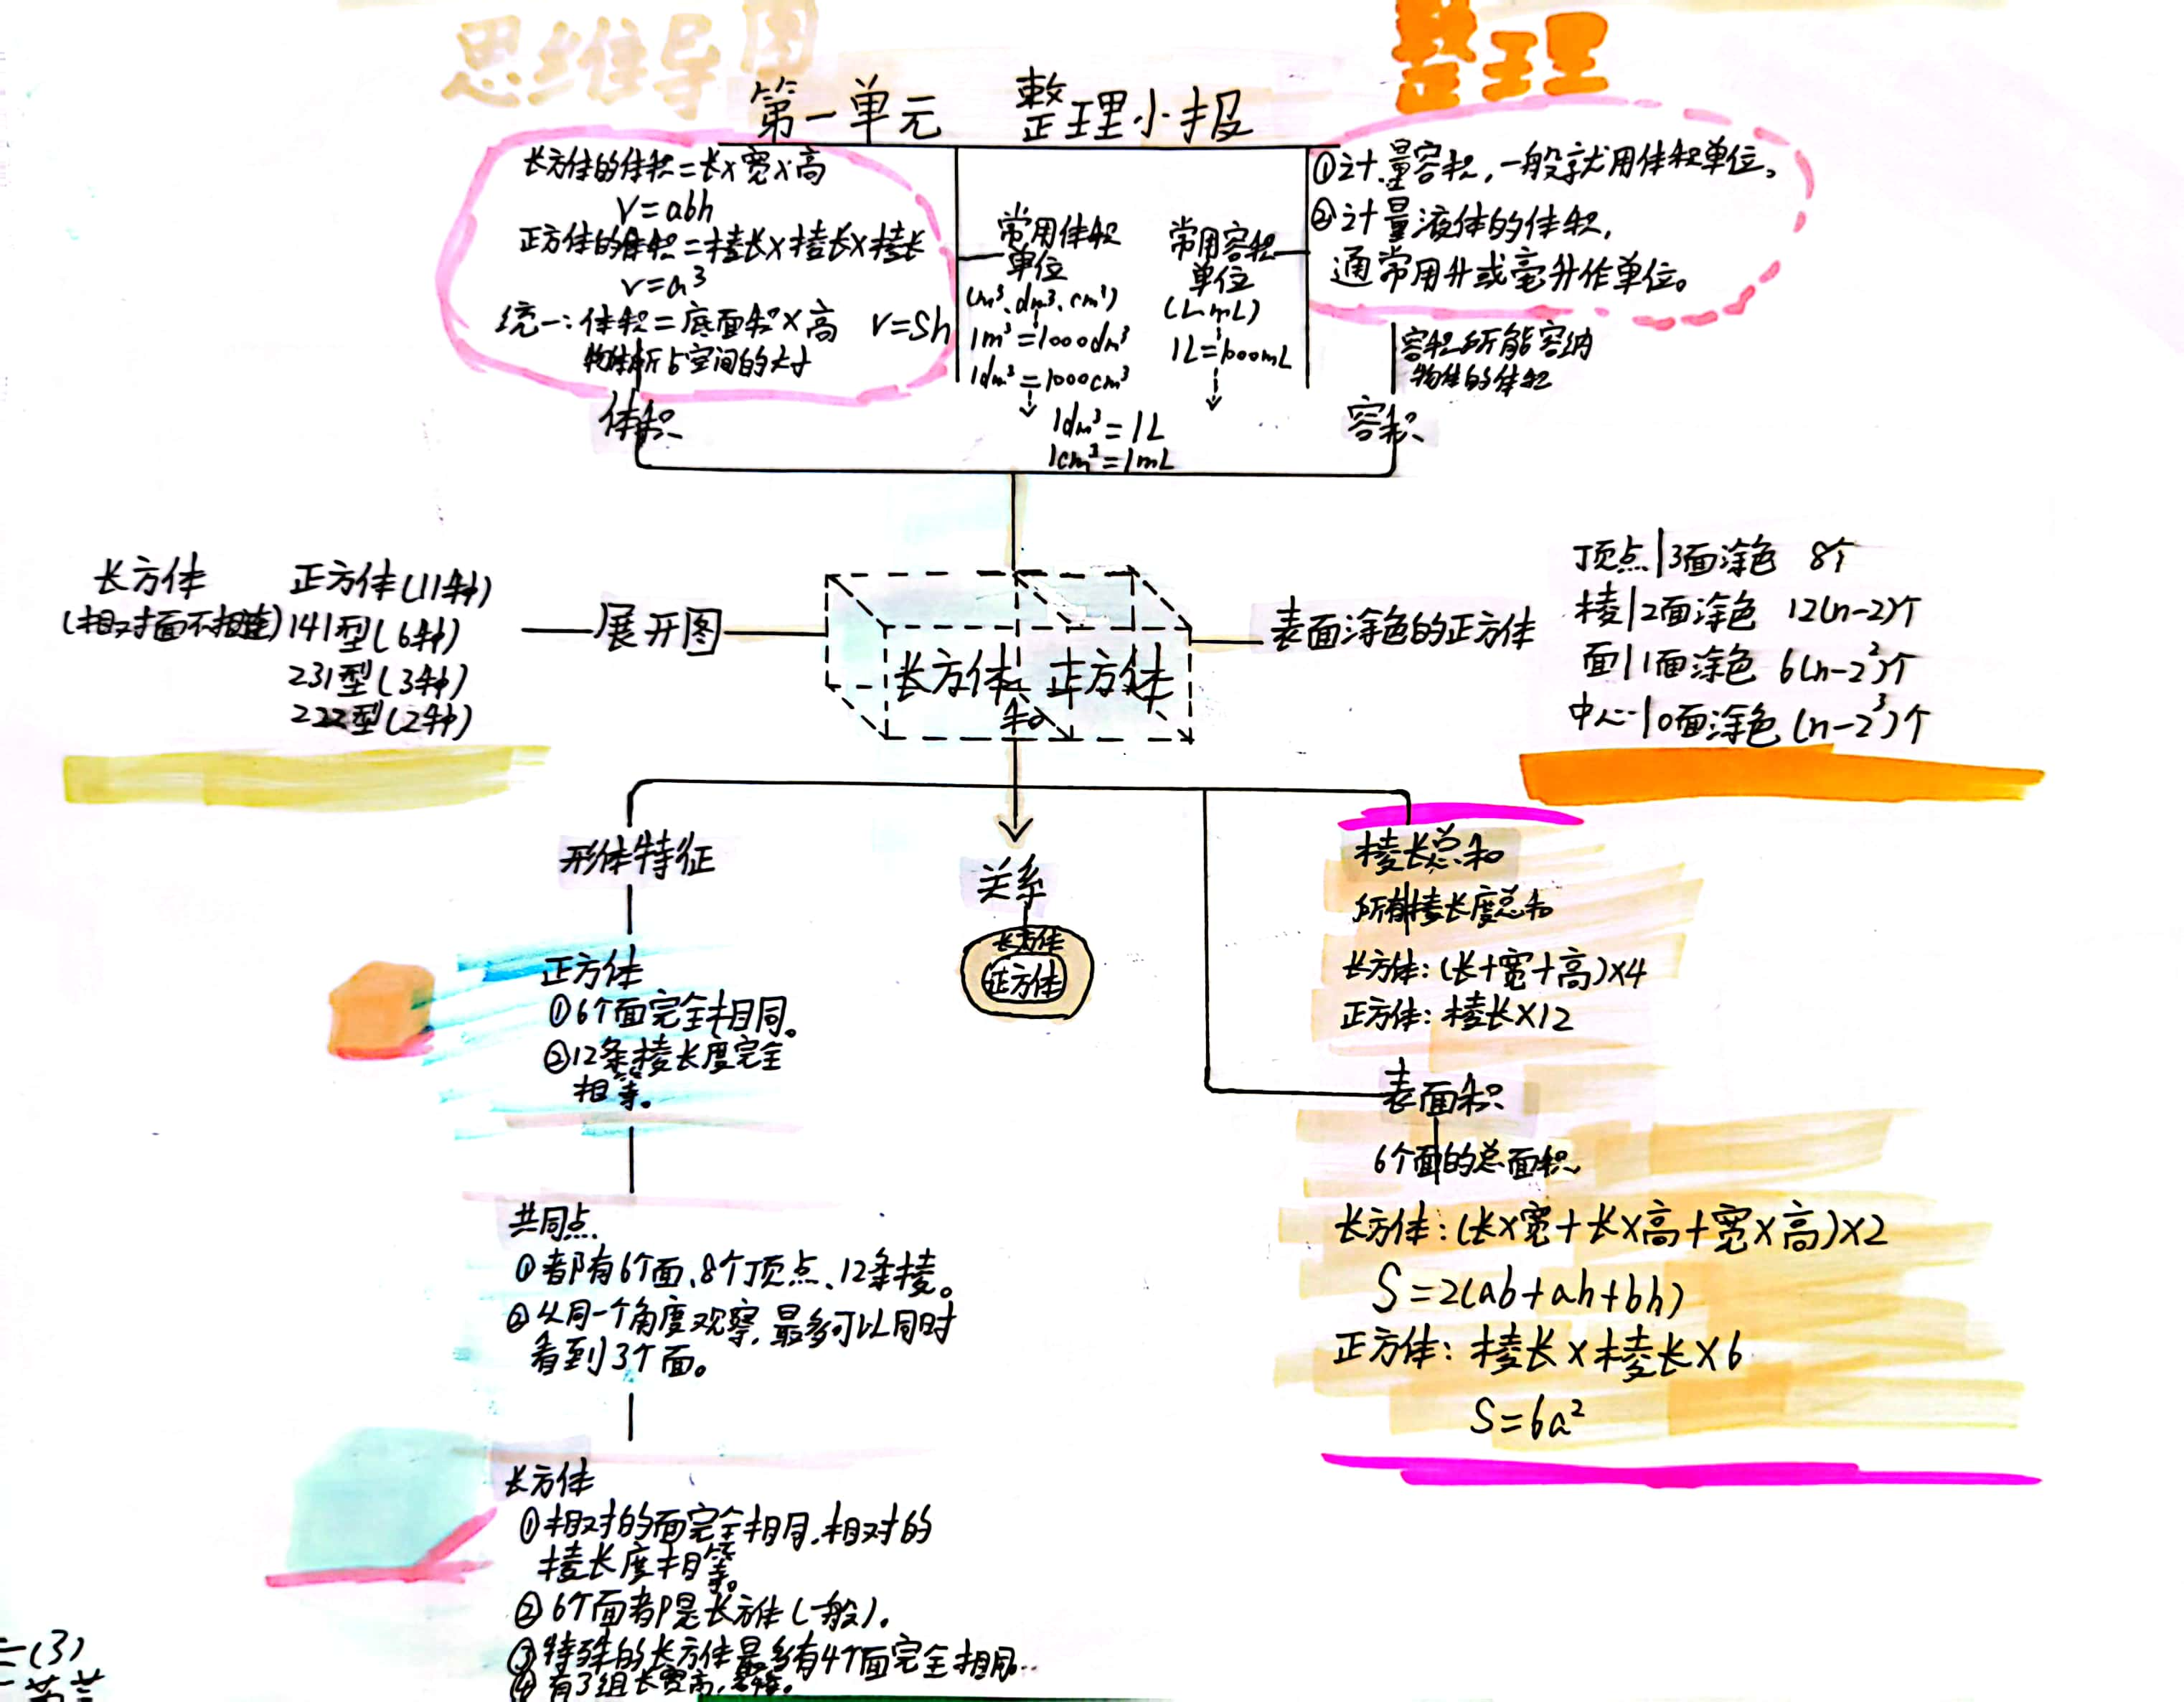 思维导图
整理
第一单元 整理小报
长方体的体积=长×宽×高
V=abh
正方体的体积=棱长×棱长×棱长
V=a³
统一:体积=底面积×高 V=Sh
物体所占空间的大小
体积
常用体积
单位
(m³、dm³、cm³)
1m³=1000dm³
1dm³=1000cm³
常用容积
单位
(L、mL)
1L=1000mL
1dm³=1L
1cm³=1mL
①计量容积,一般就用体积单位。
②计量液体的体积,
通常用升或毫升作单位。
容积所能容纳
物体的体积
容积
长方体
(相对面不相连)
正方体(11种)
141型(6种)
231型(3种)
222型(2种)
展开图
长方体 正方体
和
表面涂色的正方体
顶点|3面涂色 8个
棱|2面涂色 12(n-2)个
面|1面涂色 6(n-2²)个
中心|0面涂色 (n-2³)个
形体特征
正方体
①6个面完全相同。
②12条棱长度完全
相等。
共同点
①都有6个面、8个顶点、12条棱。
②从同一个角度观察,最多可以同时
看到3个面。
长方体
①相对的面完全相同,相对的
棱长度相等。
②6个面都是长方体(一般)。
③特殊的长方体最多有4个面完全相同..
④有3组长宽高,
关系
长方体
正方体
棱长总和
所有棱长度总和
长方体:(长+宽+高)×4
正方体:棱长×12
表面积
6个面的总面积
长方体:(长×宽+长×高+宽×高)×2
S=2(ab+ah+bh)
正方体:棱长×棱长×6
S=6a²
二(3)